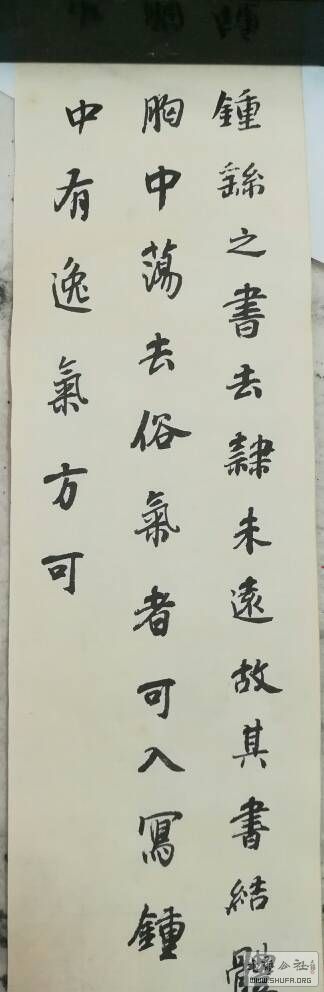 鍾繇之書去隸未遠故其書結體
胸中蕩去俗氣者可入寫鍾
中有逸氣方可
WWW.SHUFA.ORG